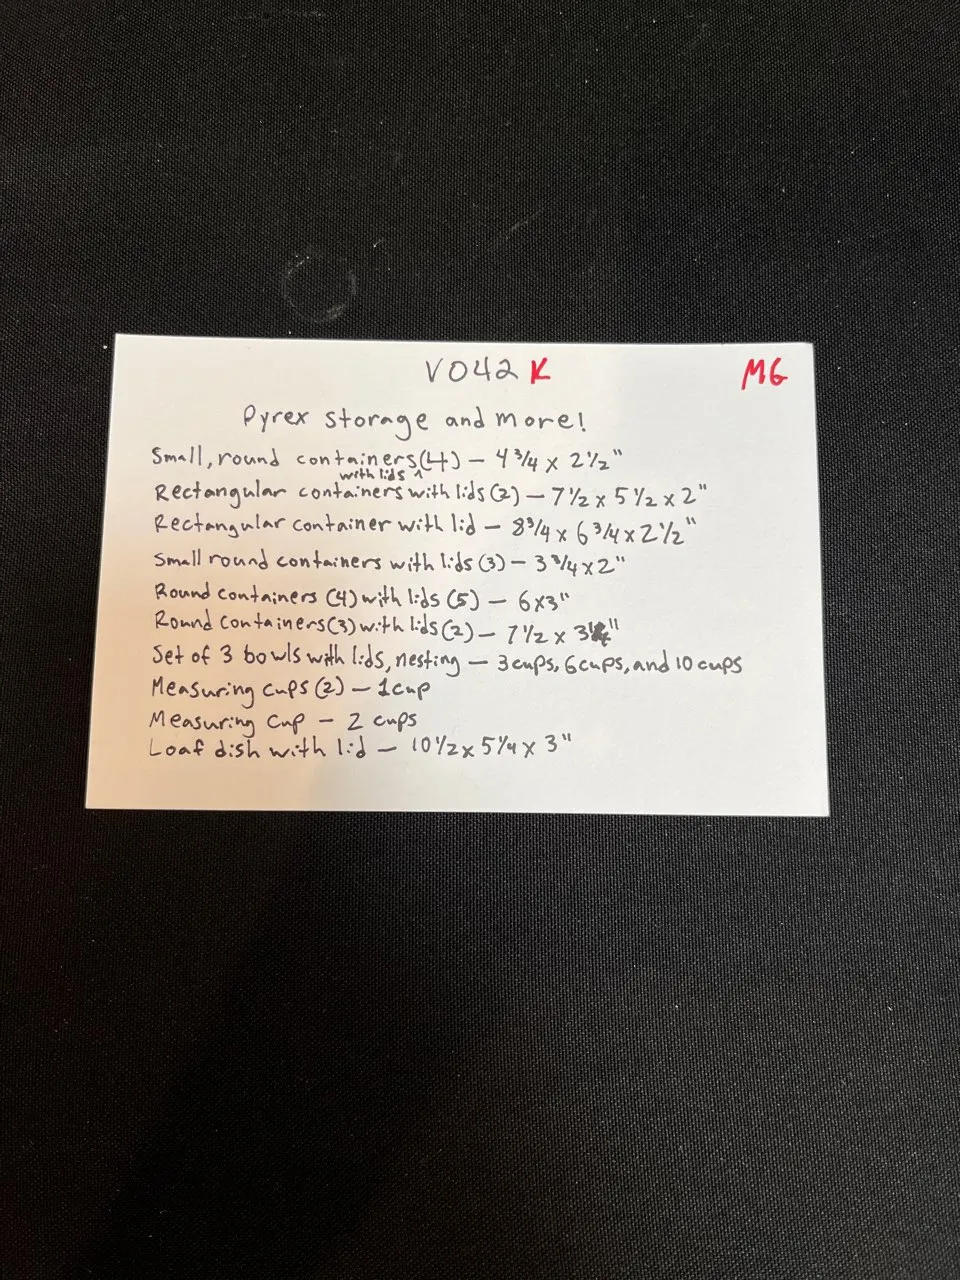 V042 K
MG
Pyrex storage and more!
Small, round containers with lids (4) – 4 3/4 x 2 1/2"
Rectangular containers with lids (2) – 7 1/2 x 5 1/2 x 2"
Rectangular container with lid – 8 3/4 x 6 3/4 x 2 1/2"
Small round containers with lids (3) – 3 3/4 x 2"
Round containers (4) with lids (5) – 6x3"
Round containers (3) with lids (2) – 7 1/2 x
Set of 3 bowls with lids, nesting – 3 cups, 6 cups, and 10 cups
Measuring cups (2) – 1 cup
Measuring cup – 2 cups
Loaf dish with lid – 10 1/2 x 5 1/4 x 3"